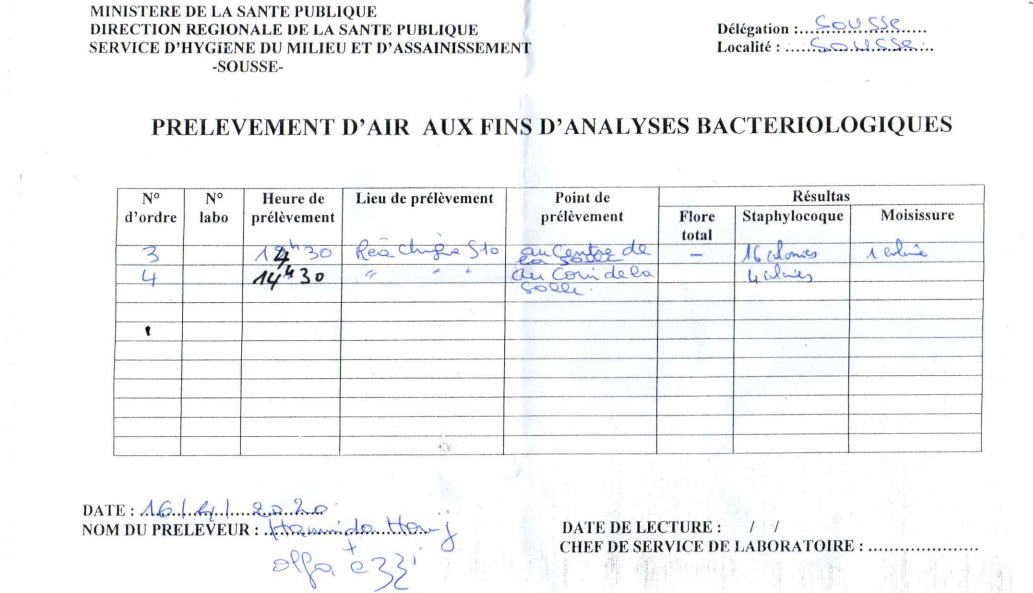 MINISTERE DE LA SANTE PUBLIQUE
DIRECTION REGIONALE DE LA SANTE PUBLIQUE
SERVICE D'HYGiENE DU MILIEU ET D'ASSAINISSEMENT
-SOUSSE-
Délégation :..Sousse......
Localité : ....Sousse....
PRELEVEMENT D'AIR AUX FINS D'ANALYSES BACTERIOLOGIQUES
N° d'ordre N° labo Heure de prélèvement Lieu de prélèvement Point de prélèvement Résultas
Flore total Staphylocoque Moisissure
3 14h30 Réa S10 au Centre de la Salle – 16 colonies 1 colonie
4 14h30 " " " au Coin de la Salle. 4 colonies
DATE : 16/4/2020
NOM DU PRELEVEUR : Hammida
+
olfa
DATE DE LECTURE : / /
CHEF DE SERVICE DE LABORATOIRE : ......................